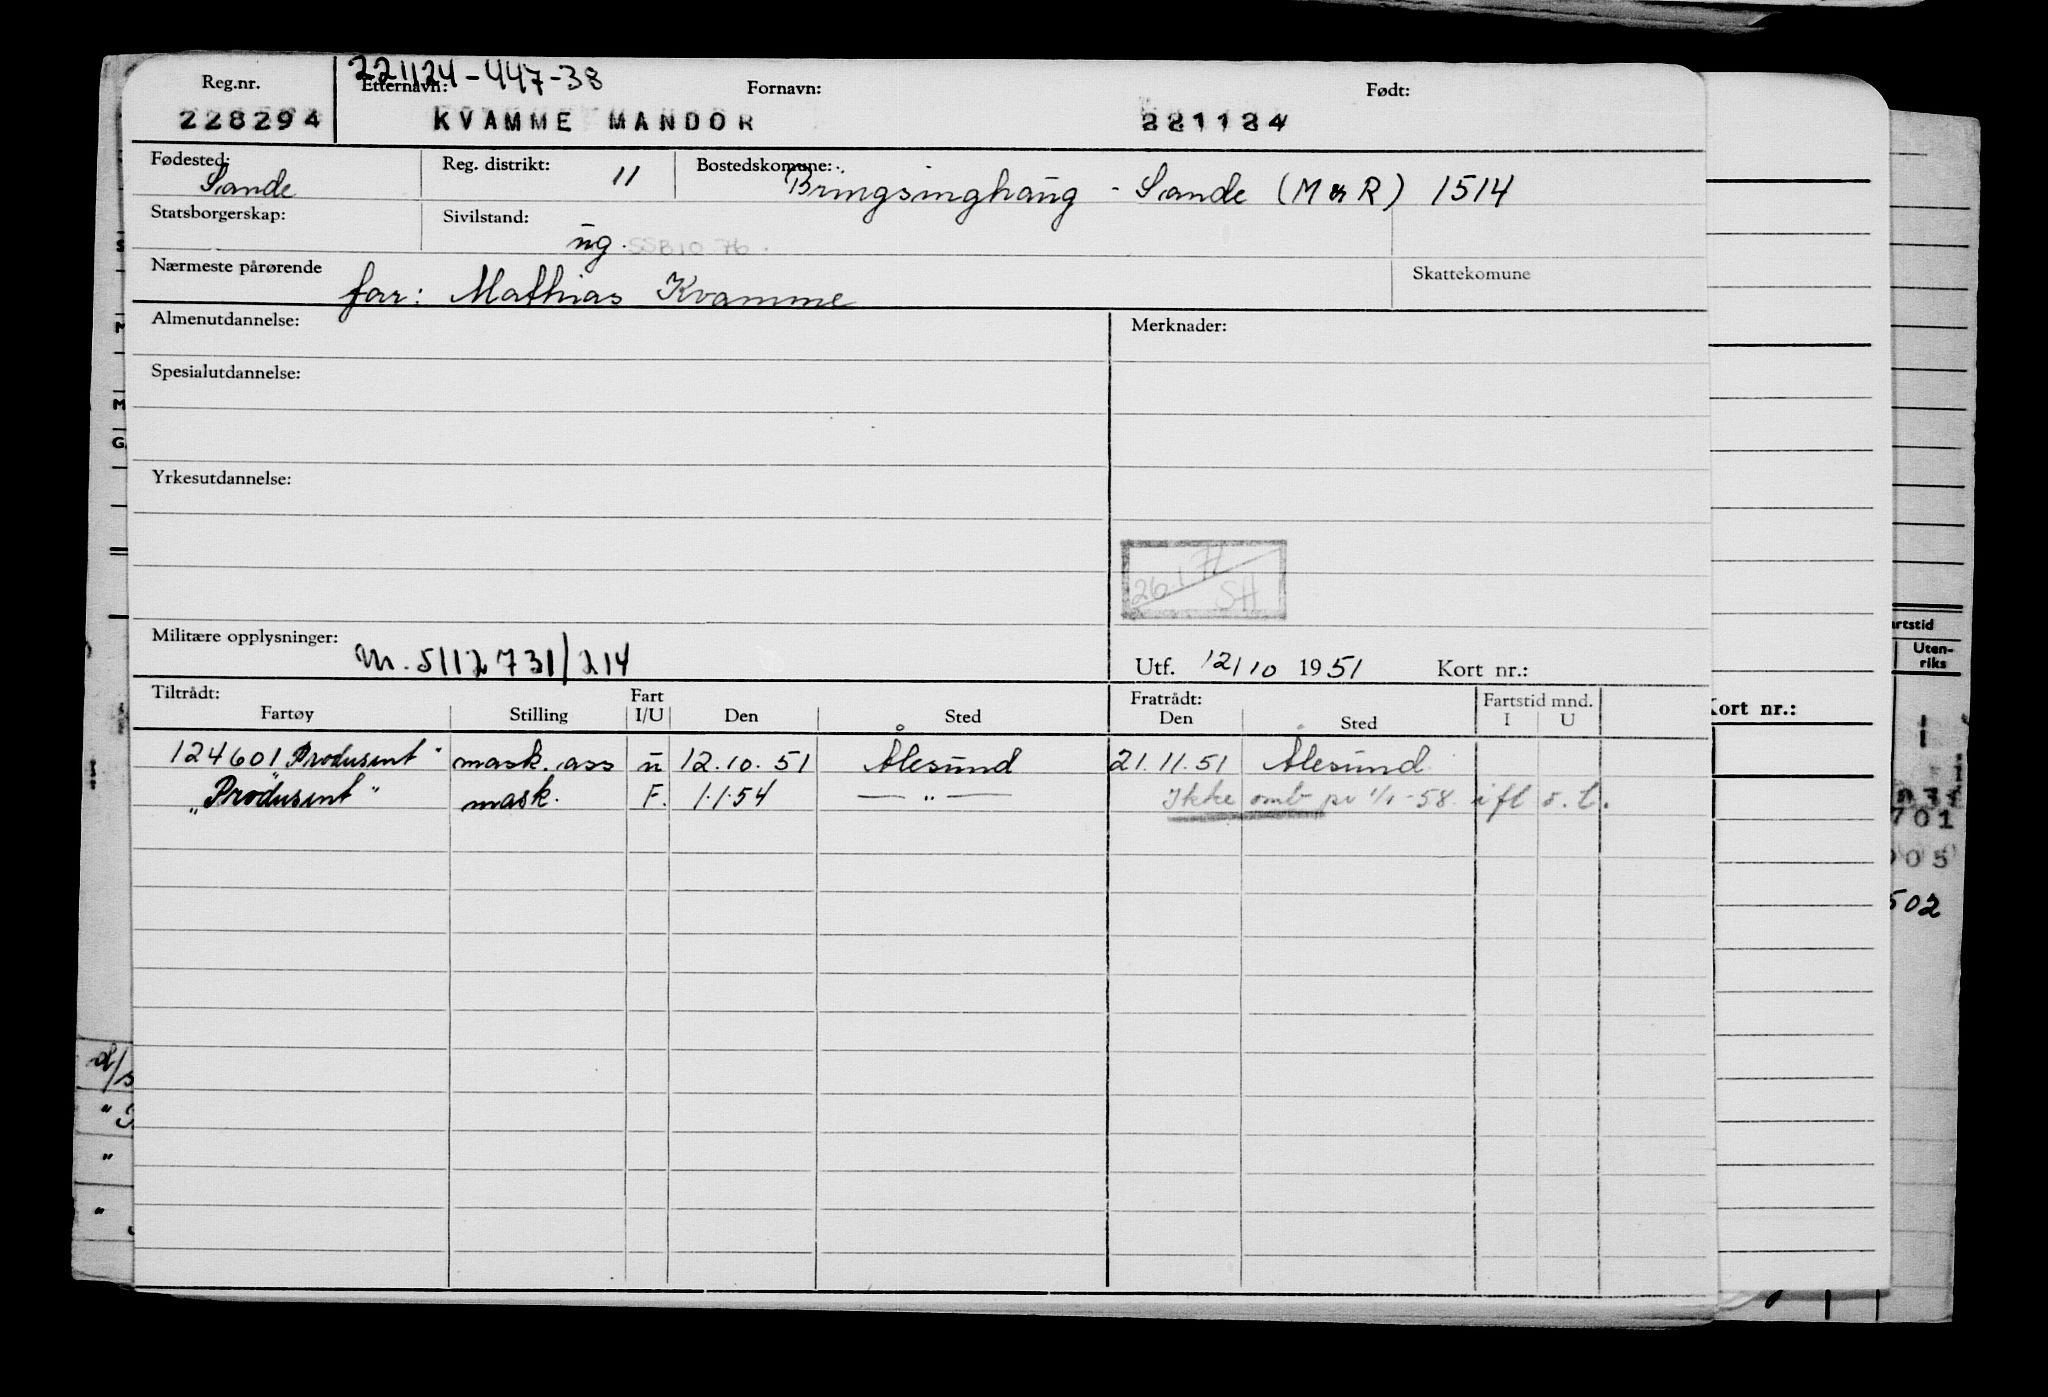 221124-447-38
Reg.nr. Etternavn: Fornavn: Født:
228294 KVAMME MANDOR 221124
Fødested: Reg. distrikt: Bostedskomune:
Sande 11 Bringsinghaug - Sande (M & R) 1514
Statsborgerskap: Sivilstand:
ug. SSB 10 76.
Nærmeste pårørende Skattekomune
far: Mathias Kvamme
Almenutdannelse: Merknader:
Spesialutdannelse:
Yrkesutdannelse:
26.1 71 SH
Militære opplysninger:
M. 5112731/214
Utf. 12/10 1951 Kort nr.:
Tiltrådt: Fart Fratrådt: Fartstid mnd.
Fartøy Stilling I/U Den Sted Den Sted I U
124601 Produsent" mask. ass u 12.10.51 Ålesund 21.11.51 Ålesund
"Produsent" mask. F. 1.1.54 — " — Ikke omb pr 1/1-58. ifl s.t.
S
M
M
G
d/s
"
"
"
artstid
Uten-
riks
Kort nr.:
701
005
502